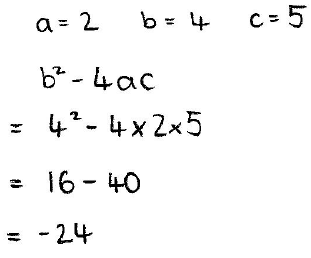 a = 2 b = 4 c = 5
b² - 4ac
= 4² - 4×2×5
= 16 - 40
= -24